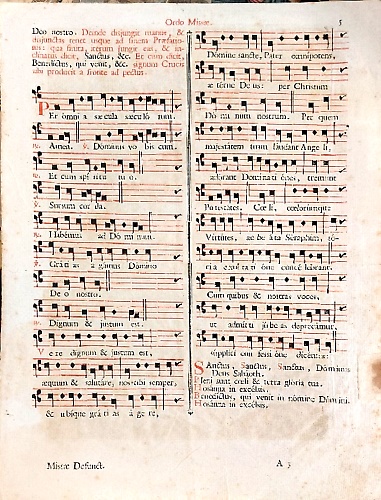 Ordo Missæ. 5
Deo nostro. Deinde disjungit manus, &
disjunctas tenet usque ad finem Præfatio-
nis: qua finita, iterum jungit eas, & in-
clinatus dicit, Sanctus, &c. Et cum dicit,
Benedictus, qui venit, &c. signum Crucis
sibi producit a fronte ad pectus.
PEr omni a sæcula sæculó rum.
℟. Amen. ℣. Dóminus vo bis cum.
℟. Et cum spí ritu tu o.
℣. Sursum cor da.
℟. Habémus ad Dó mi num.
℣. Grá ti as a gámus Dómino
De o nostro.
℟. Dignum & justum est.
VEre dignum & justum est,
æquum & salutáre, nos tibi semper,
& ubíque grá ti as á ge re,
Dómine sancte, Pater omnípotens,
æ térne De us: per Christum
Dó mi num nostrum. Per quem
majestátem tuam laudant Ange li,
adórant Dominati ónes, tremunt
Potestátes. Cœ li, cœlorúmque
Virtútes, ac be áta Séraphim, só-
cia exultati óne concé lebrant.
Cum quibus & nostras voces,
ut admítti jú be ás deprecámur,
súpplici con fessi óne dicéntes:
SAnctus, Sanctus, Sanctus, Dóminus
Deus Sábaoth.
Pleni sunt cœli & terra glória tua.
Hosánna in excélsis.
Benedíctus, qui venit in nómine Dómini.
Hosánna in excélsis.
Missæ Defunct. A 3